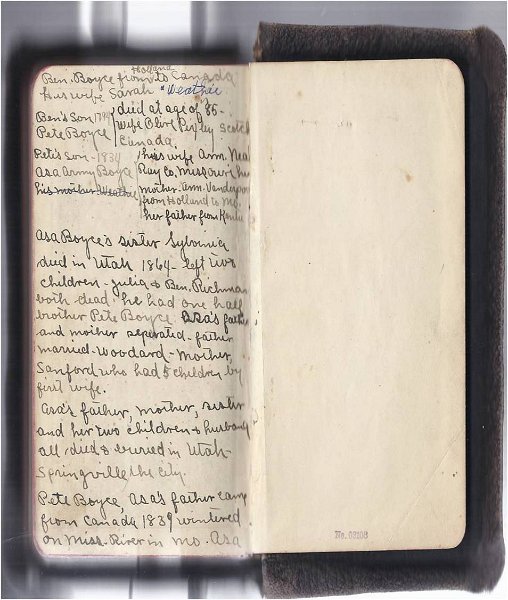 Holland
Ben. Boyce from to Canada
his wife Sarah "Weathie
Ben's Son 1794 died at age of 85-
Pete Boyce wife Olive Scotch
Canada.
Pete's Son - 1834 his wife Ann.
Asa Army Boyce Ray Co. Missouri her
his mother Weathie mother. Ann.
from Holland to Mo.
her father from
Asa Boyce's sister Sylvinia
died in Utah 1864 - left two
children - Julia & Ben. Richman
both dead. he had one half
brother Pete Boyce. asa's father
and mother seperated - father
married - Woodard - Mother,
Sanford who had 5 children by
first wife.
Asa's father, mother, sister
and her two children & husband
all died & buried in Utah -
Springville the city.
Pete Boyce, Asa's father came
from Canada 1839 wintered
on Miss. River in Mo. Asa
No. 08108